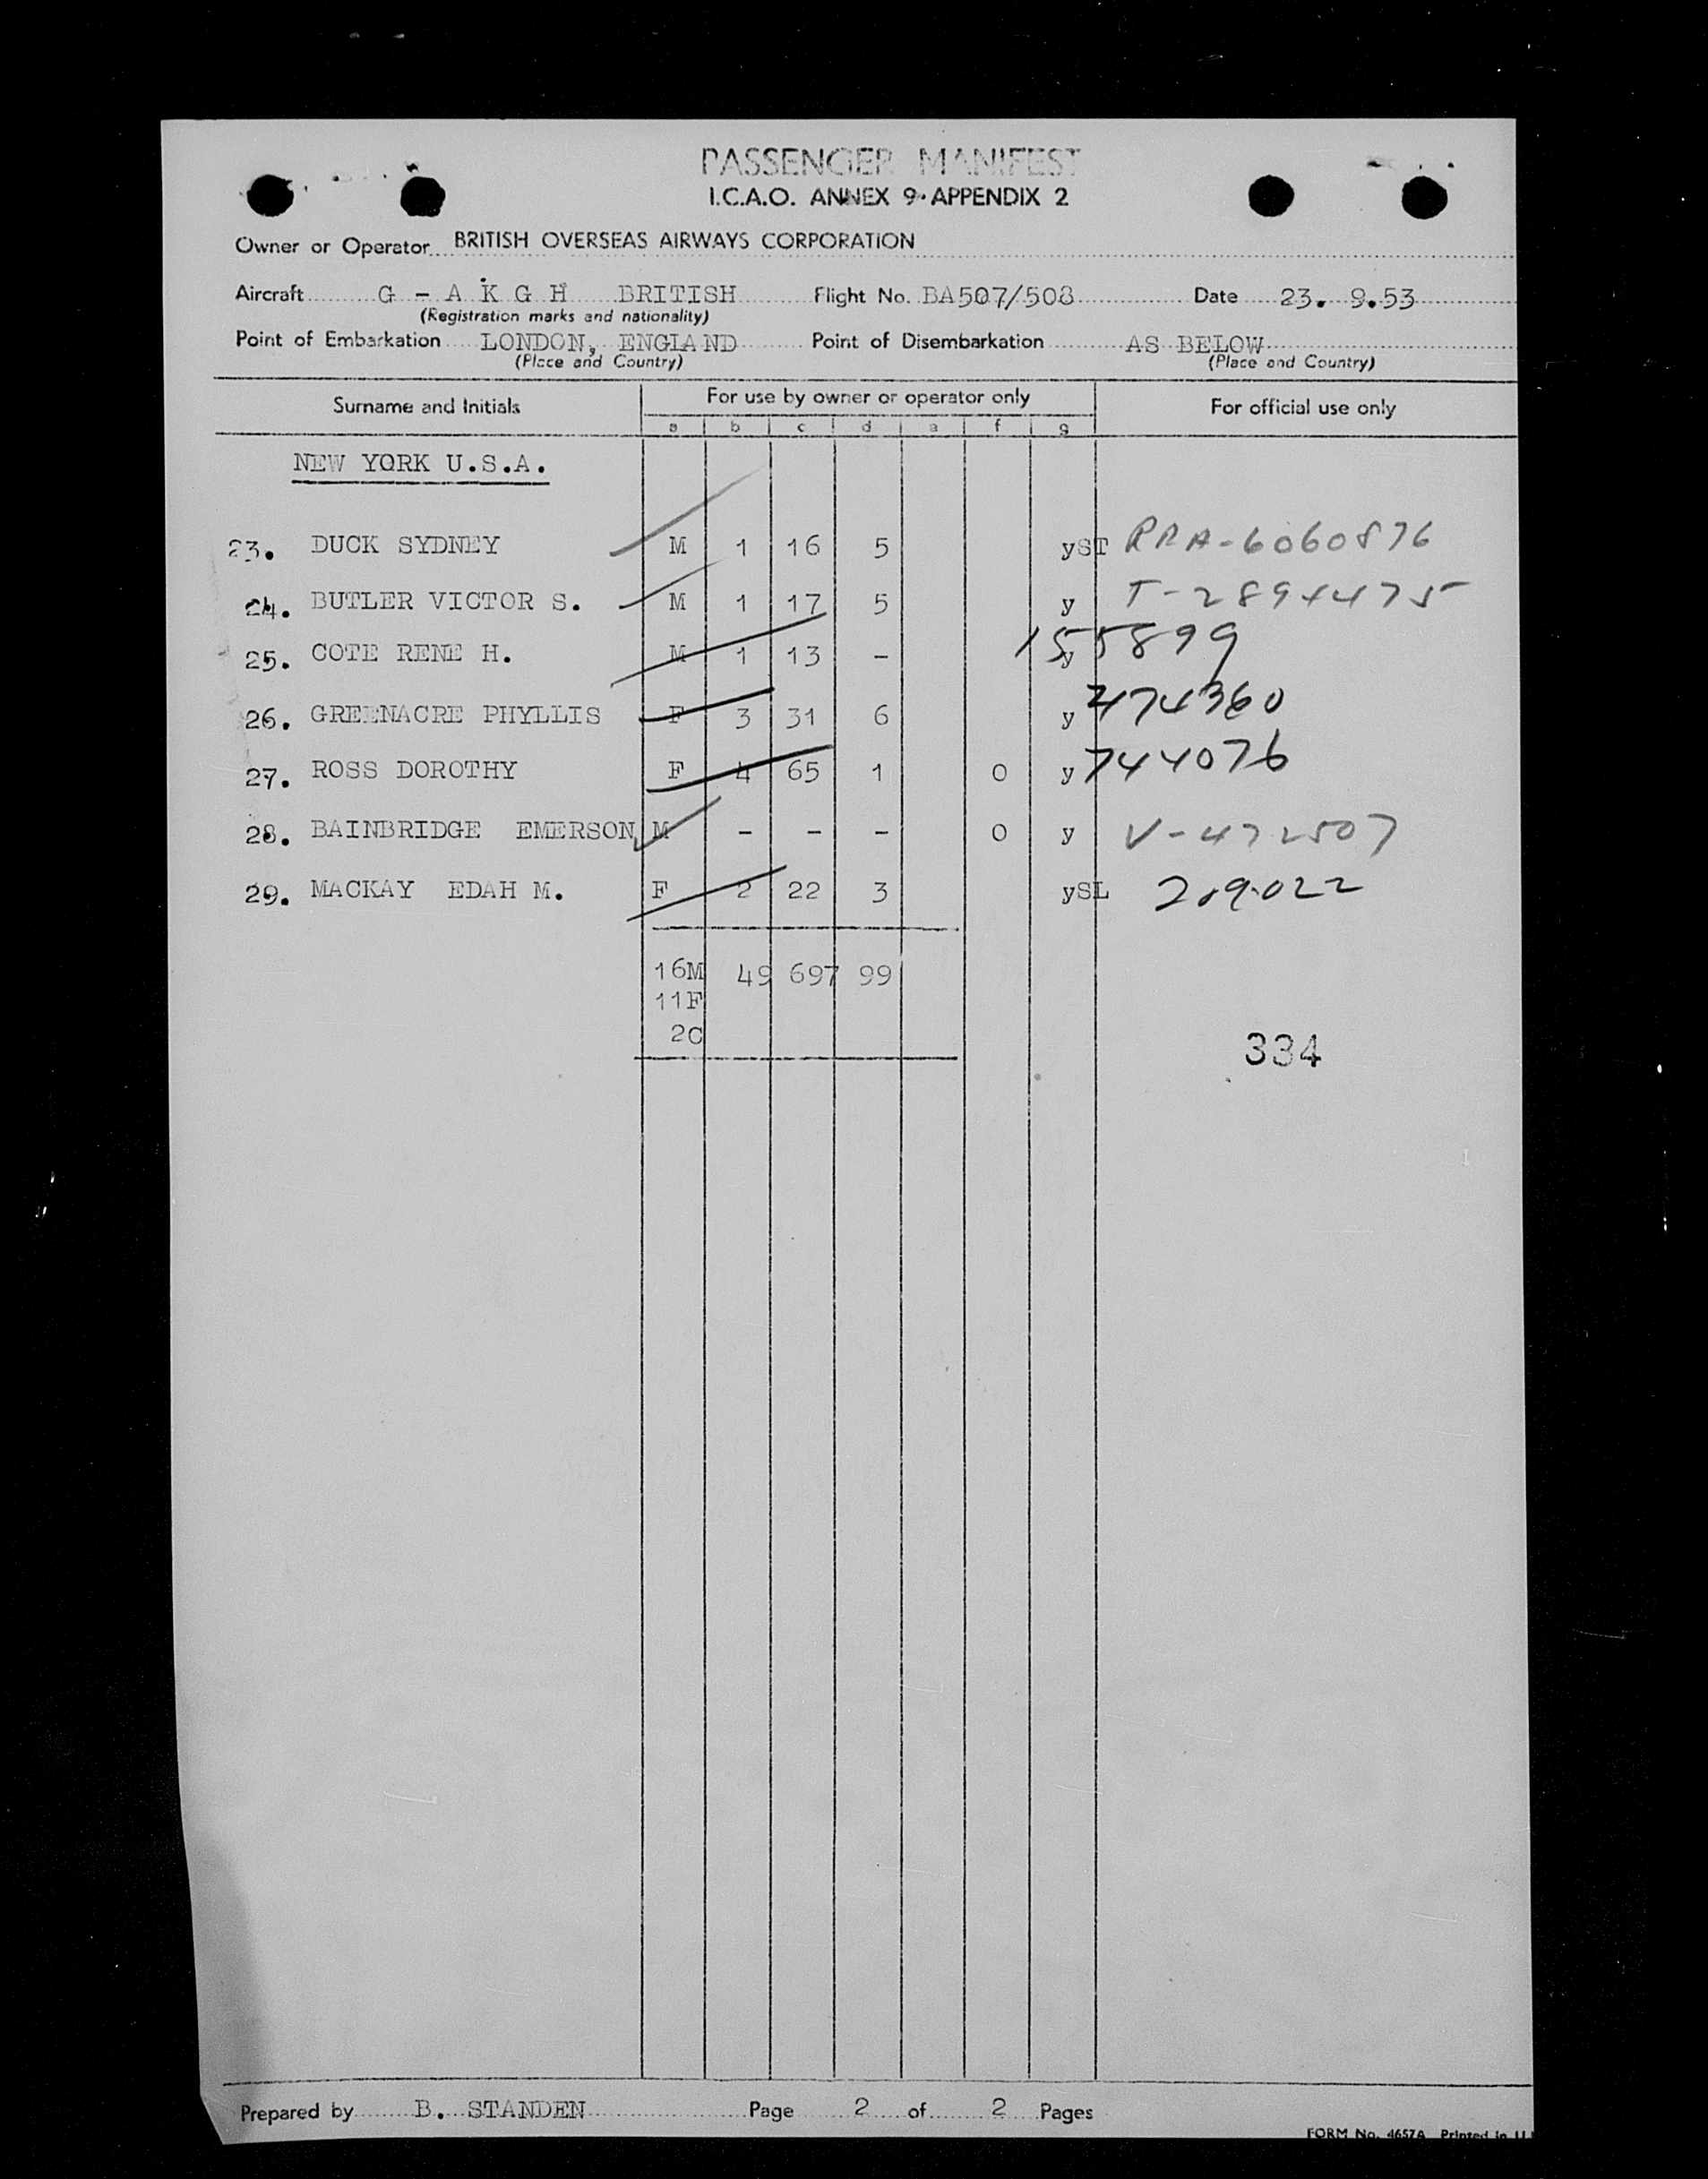 PASSENGER MANIFEST
I.C.A.O. ANNEX 9. APPENDIX 2
Owner or Operator BRITISH OVERSEAS AIRWAYS CORPORATION
Aircraft G - A K G H BRITISH Flight No. BA507/508 Date 23. 9.53
(Registration marks and nationality)
Point of Embarkation LONDON, ENGLAND Point of Disembarkation AS BELOW
(Place and Country) (Place and Country)
Surname and Initials For use by owner or operator only For official use only
a b c d e f g
NEW YORK U.S.A.
23. DUCK SYDNEY M 1 16 5 yST RRA-6060876
24. BUTLER VICTOR S. M 1 17 5 y T-2894475
25. COTE RENE H. M 1 13 - y 155899
26. GREENACRE PHYLLIS F 3 31 6 y 474360
27. ROSS DOROTHY F 4 65 1 0 y 744076
28. BAINBRIDGE EMERSON M - - - 0 y V-472507
29. MACKAY EDAH M. F 2 22 3 ySL
16M 49 697 99
11F
2C
334
Prepared by B. STANDEN Page 2 of 2 Pages
FORM No. 4657A Printed in